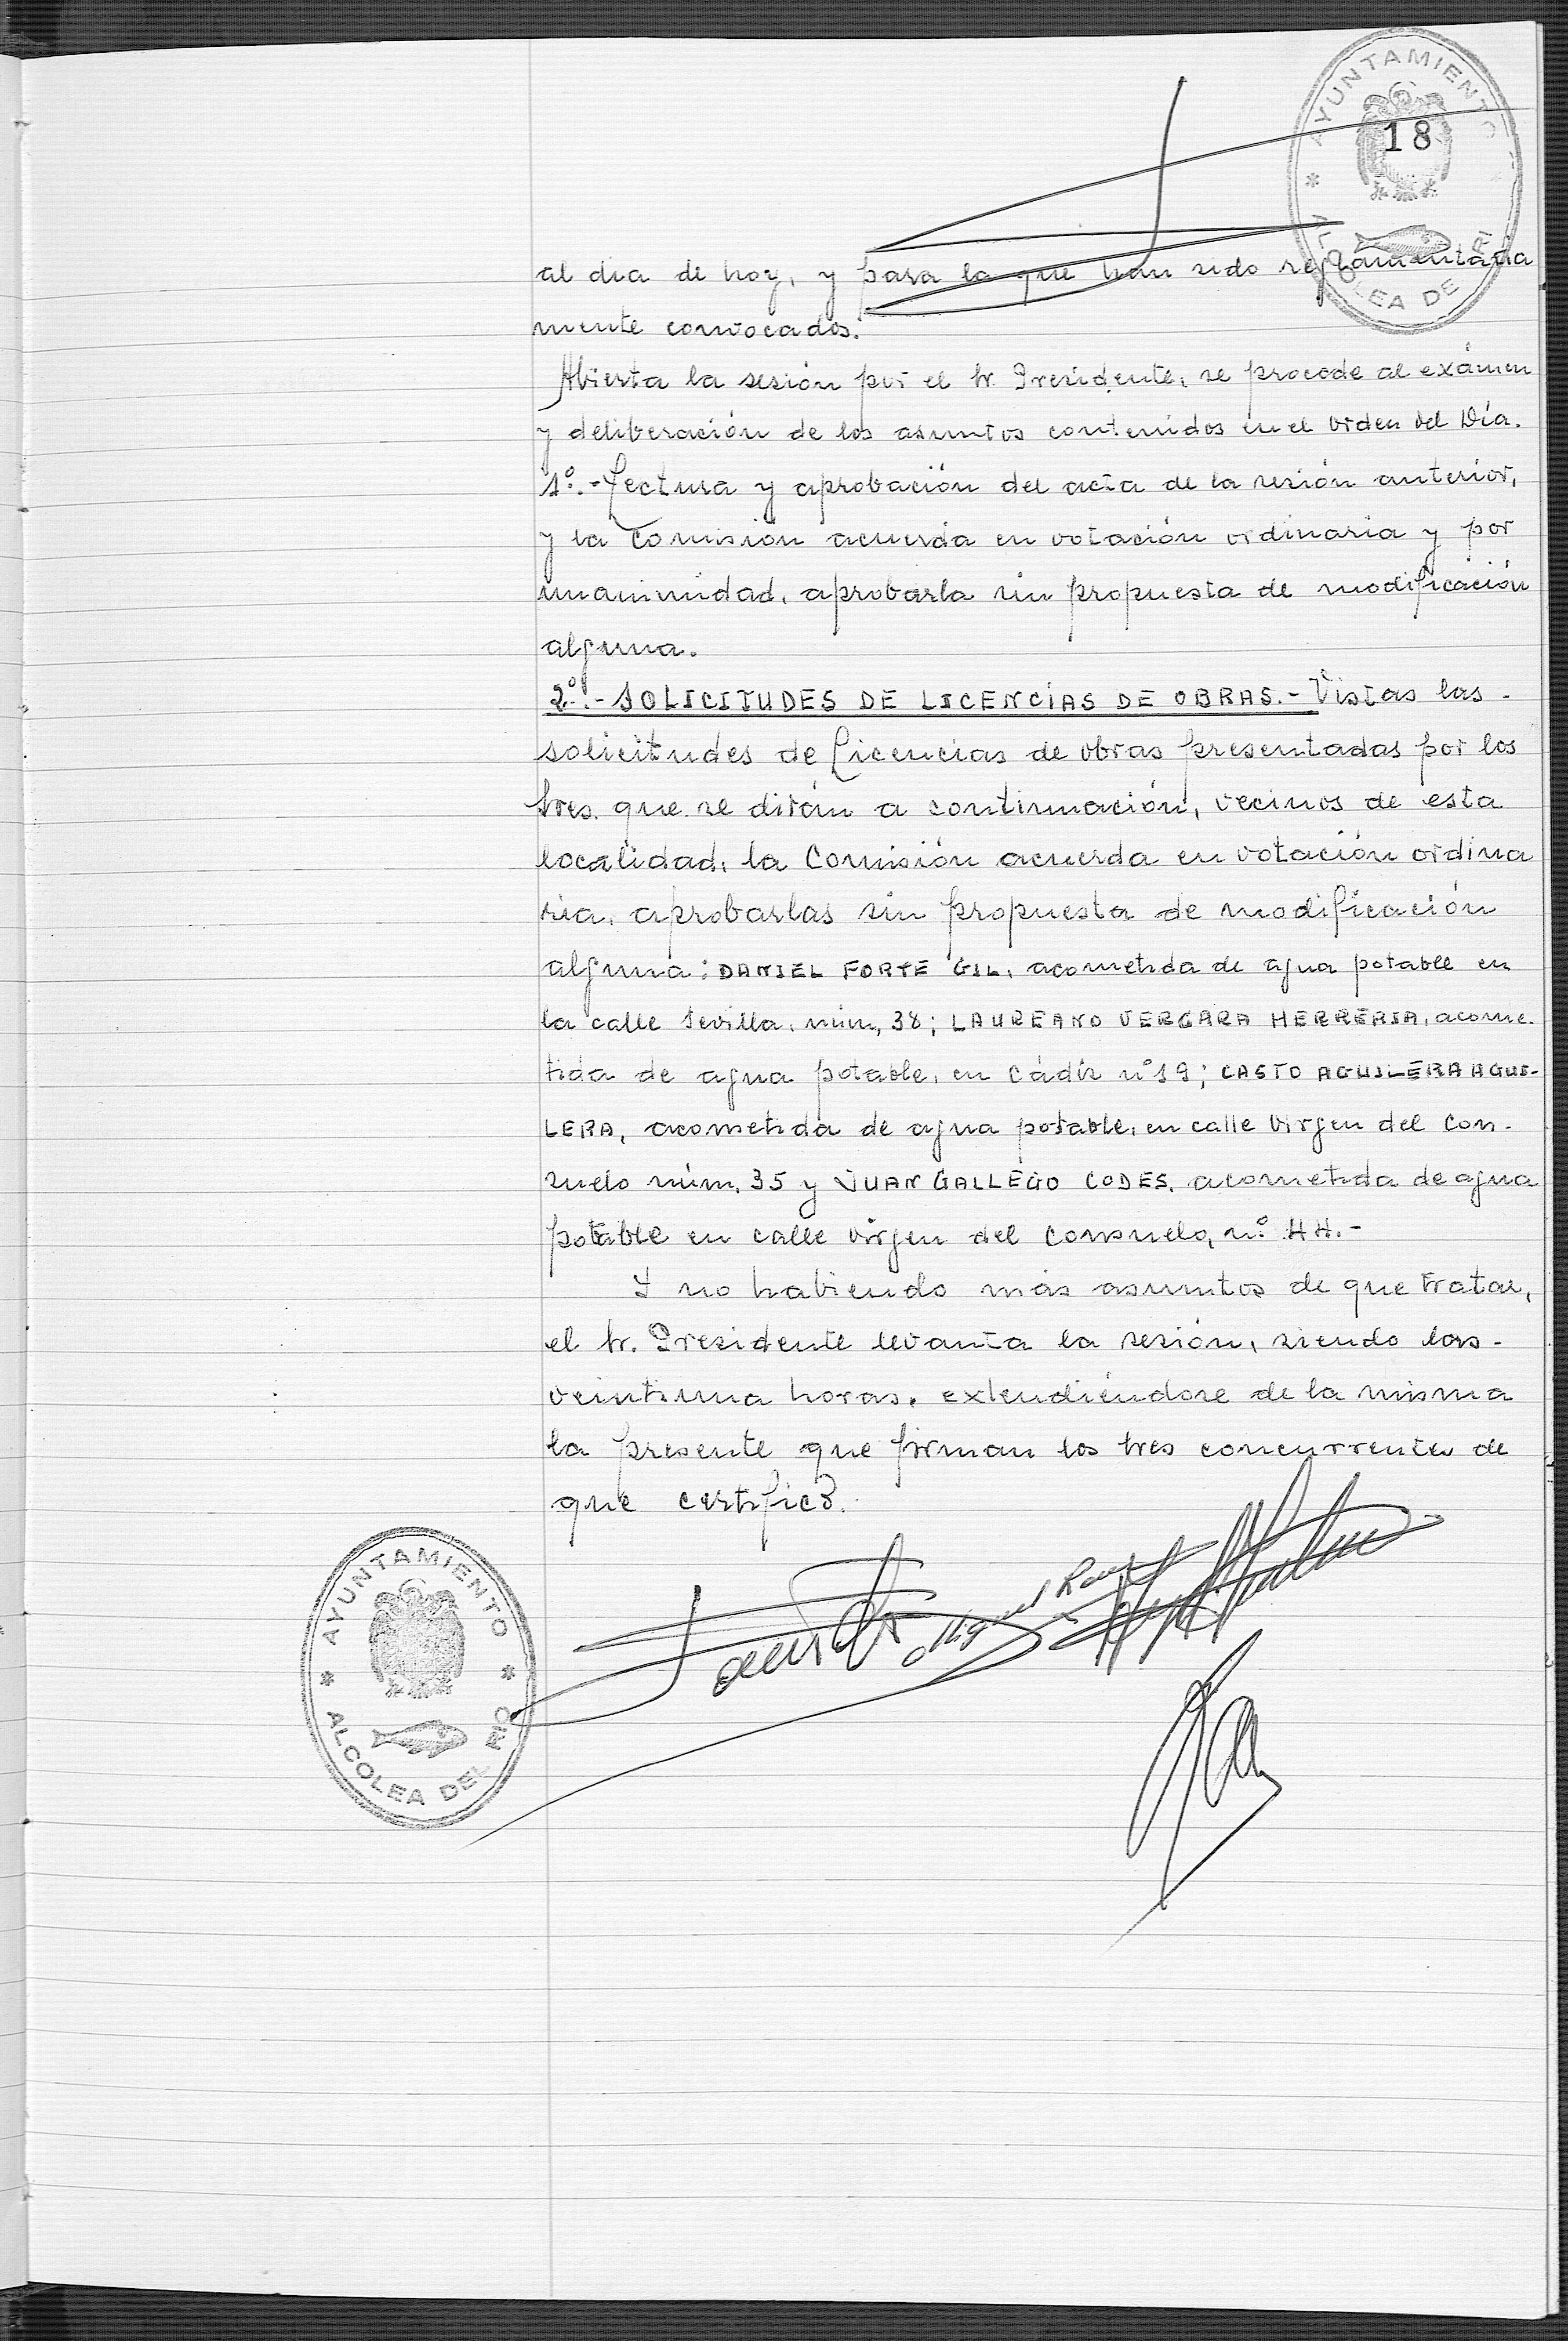 AYUNTAMIENTO
18
ALCOLEA DE RI
al dia de hoy, y para la que han sido reglamentaria
mente convocados.
Abierta la sesión por el Sr. Presidente, se procede al exámen
y deliberación de los asuntos contenidos en el orden del Día.
1º.- Lectura y aprobación del acta de la sesión anterior,
y la Comisión acuerda en votación ordinaria y por
unanimidad, aprobarla sin propuesta de modificación
alguna.
2º.- SOLICITUDES DE LICENCIAS DE OBRAS.- Vistas las -
solicitudes de Licencias de obras presentadas por los
Sres. que se dirán a continuación, vecinos de esta
localidad, la Comisión acuerda en votación ordina
ria, aprobarlas sin propuesta de modificación
alguna: DANIEL FORTE GIL, acometida de agua potable en
la calle Sevilla, núm, 38; LAUREANO VERGARA HERRERIA, acome-
tida de agua potable, en Cádiz nº 19; CASTO AGUILERA AGUI-
LERA, acometida de agua potable, en calle Virgen del Con-
suelo núm. 35 y JUAN GALLEGO CODES, acometida de agua
potable en calle Virgen del Consuelo, nº 44.-
Y no habiendo más asuntos de que tratar,
el Sr. Presidente levanta la sesión, siendo las -
veintiuna horas, extendiéndose de la misma
la presente que firman los Sres concurrentes de
que certifico.
Miguel
AYUNTAMIENTO
ALCOLEA DEL RIO